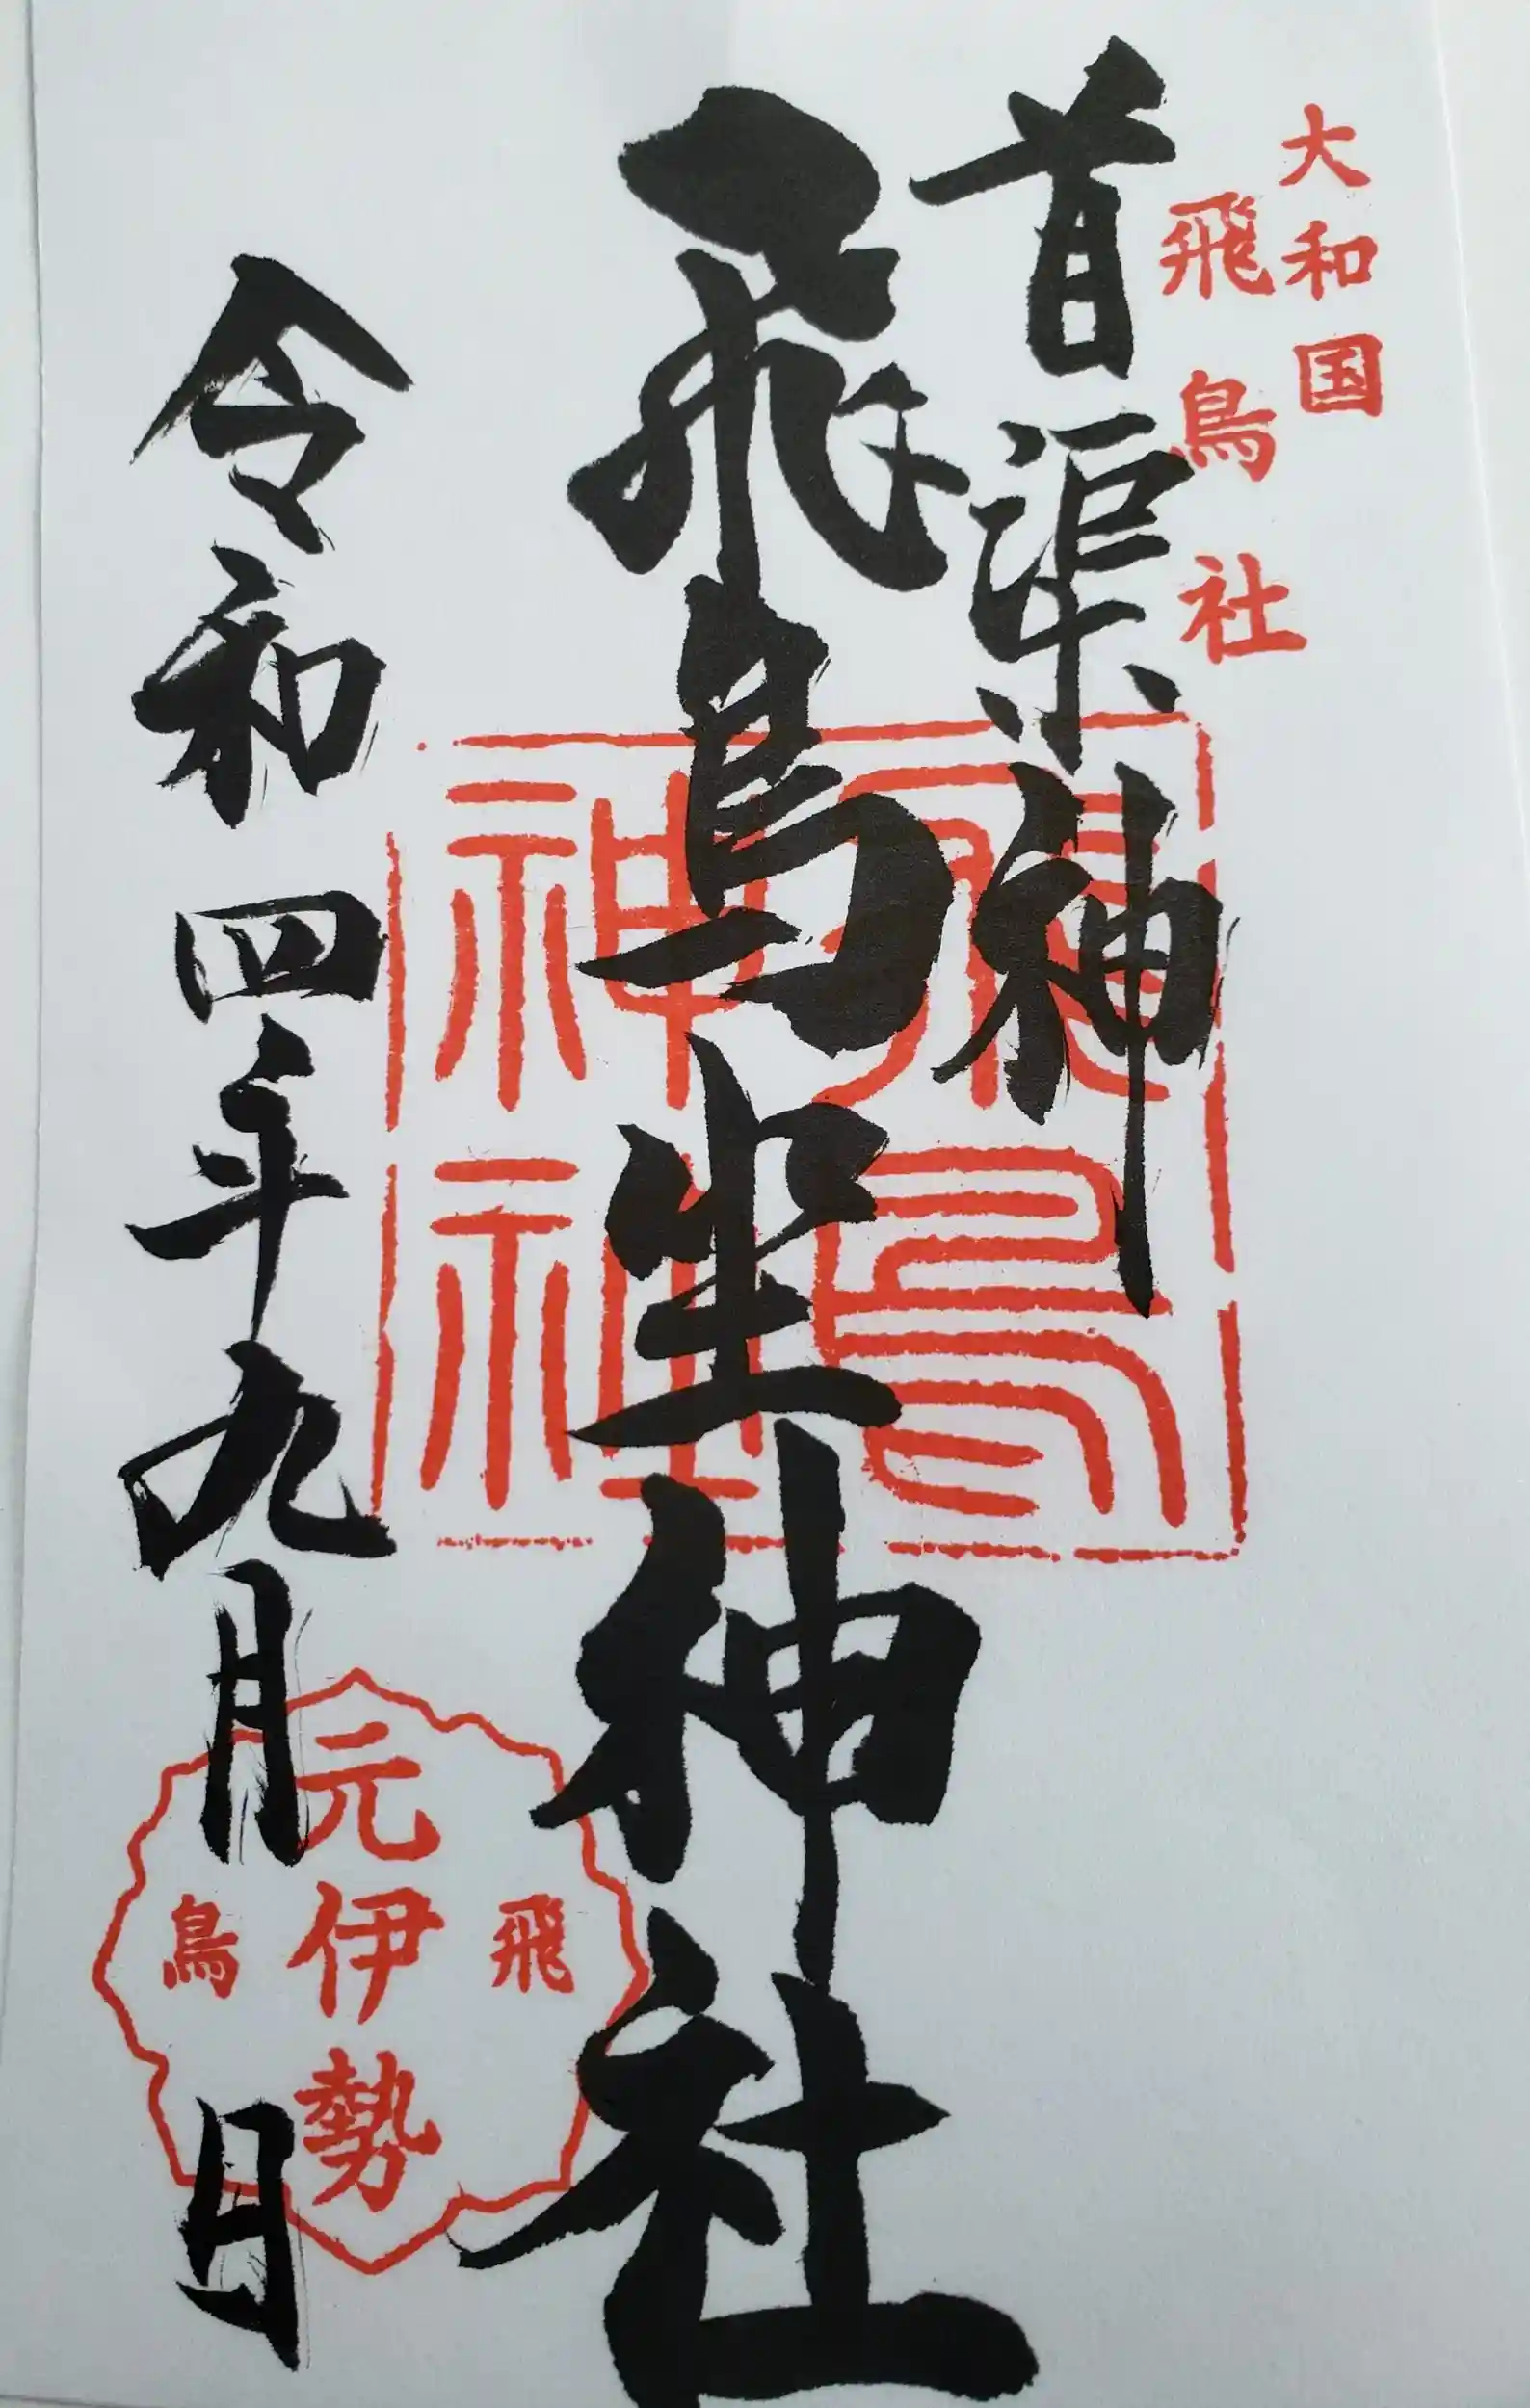 大和国
飛鳥社
首渠神
飛鳥坐神社
飛鳥
神社
令和四年九月 日
元伊勢
飛鳥